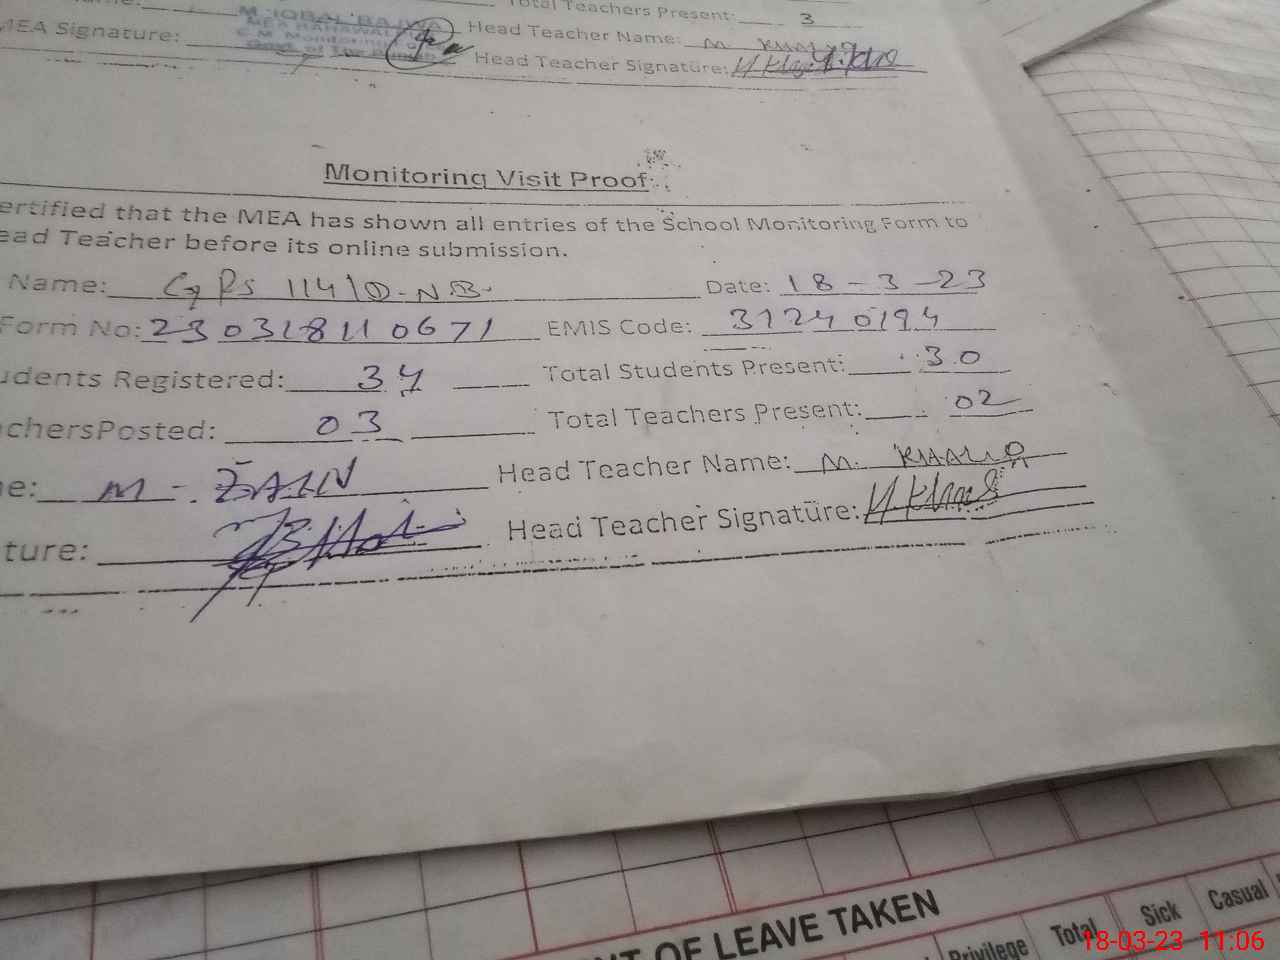 Total Teachers Present: 3
M. IQBAL BAJWA
MEA BAHAWAL
MEA Signature: Head Teacher Name: M
Head Teacher Signature:
Monitoring Visit Proof
ertified that the MEA has shown all entries of the School Monitoring Form to
ead Teacher before its online submission.
Name: GPS 114/D.N.B. Date: 18-3-23
Form No: 230318110671 EMIS Code: 31240194
udents Registered: 34 Total Students Present: 30
achersPosted: 03 Total Teachers Present: 02
e: M. ZAIN Head Teacher Name: M. KHALID
ture: Head Teacher Signature:
NT OF LEAVE TAKEN
Privilege Total Sick Casual
18-03-23 11:06